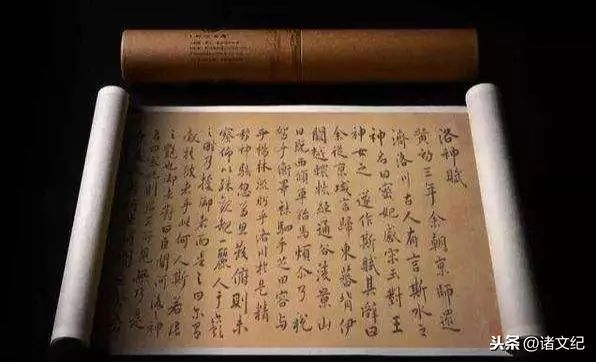 洛神賦
黃初三年余朝京師還
濟洛川古人有言斯水之
神名曰宓妃感宋玉對王
神女之事遂作斯賦其辭曰
余從京域言歸東藩背伊
闕越轘轅經通谷陵景山
日既西傾車殆馬煩尔乃税
駕乎蘅皋秣駟乎芝田容與
乎楊林流眄乎洛川於是精
移神駭忽焉思散俯則未
察仰以殊觀睹一麗人于巖
之畔乃援御者而告之曰尔有
覿於彼者乎此何人斯若此
之艷也御者對曰臣聞河洛之神
名曰宓妃則君王所見無乃是
头条@诸文纪